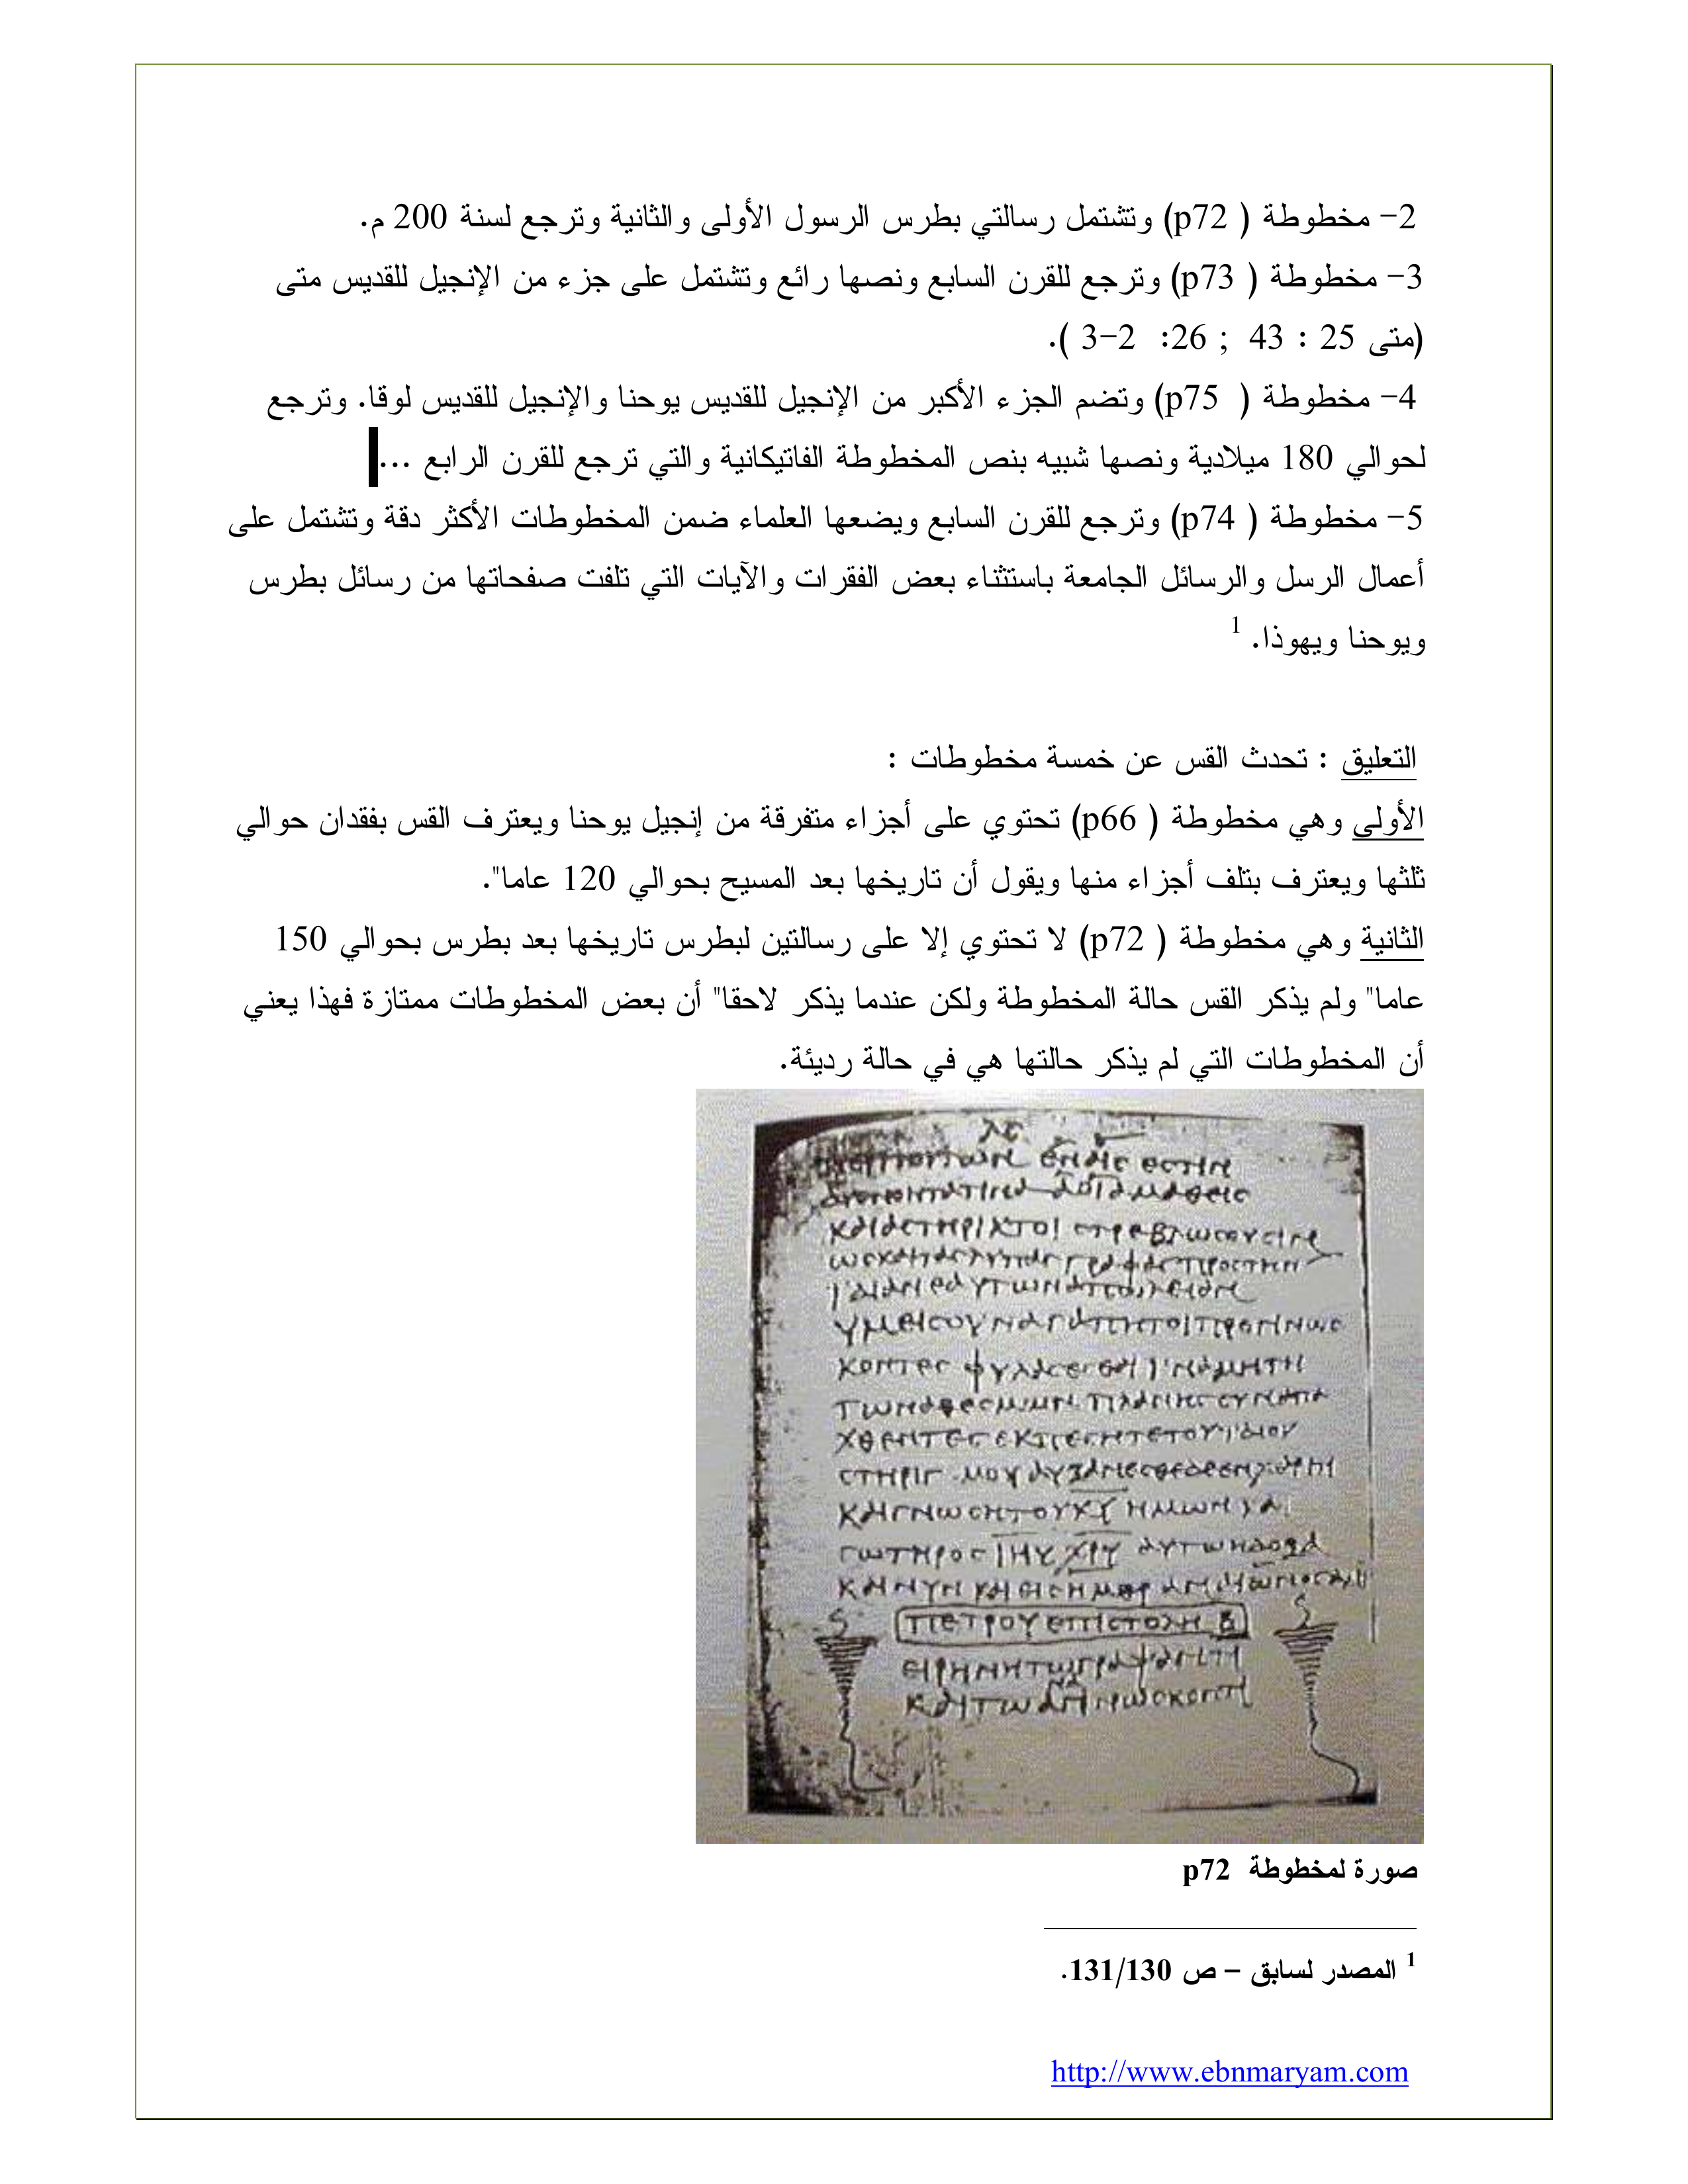 2- مخطوطة ( p72) وتشتمل رسالتي بطرس الرسول الأولى والثانية وترجع لسنة 200 م.
3- مخطوطة ( p73) وترجع للقرن السابع ونصها رائع وتشتمل على جزء من الإنجيل للقديس متى
(متى 25 : 43 ; 26: 2-3 ).
4- مخطوطة ( p75) وتضم الجزء الأكبر من الإنجيل للقديس يوحنا والإنجيل للقديس لوقا. وترجع
لحوالي 180 ميلادية ونصها شبيه بنص المخطوطة الفاتيكانية والتي ترجع للقرن الرابع ...
5- مخطوطة ( p74) وترجع للقرن السابع ويضعها العلماء ضمن المخطوطات الأكثر دقة وتشتمل على
أعمال الرسل والرسائل الجامعة باستثناء بعض الفقرات والآيات التي تلفت صفحاتها من رسائل بطرس
ويوحنا ويهوذا. 1
التعليق : تحدث القس عن خمسة مخطوطات :
الأولى وهي مخطوطة ( p66) تحتوي على أجزاء متفرقة من إنجيل يوحنا ويعترف القس بفقدان حوالي
ثلثها ويعترف بتلف أجزاء منها ويقول أن تاريخها بعد المسيح بحوالي 120 عاما".
الثانية وهي مخطوطة ( p72) لا تحتوي إلا على رسالتين لبطرس تاريخها بعد بطرس بحوالي 150
عاما" ولم يذكر القس حالة المخطوطة ولكن عندما يذكر لاحقا" أن بعض المخطوطات ممتازة فهذا يعني
أن المخطوطات التي لم يذكر حالتها هي في حالة رديئة.
ΠΕΤΡΟΥ ΕΠΙϹΤΟΛΗ Β
صورة لمخطوطة p72
1 المصدر لسابق – ص 131/130.
http://www.ebnmaryam.com